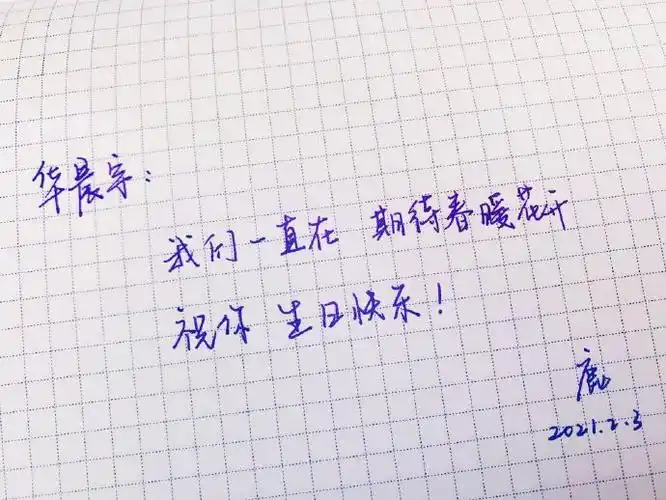 华晨宇：
我们一直在 期待春暖花开
祝你 生日快乐！
鹿
2021.2.3